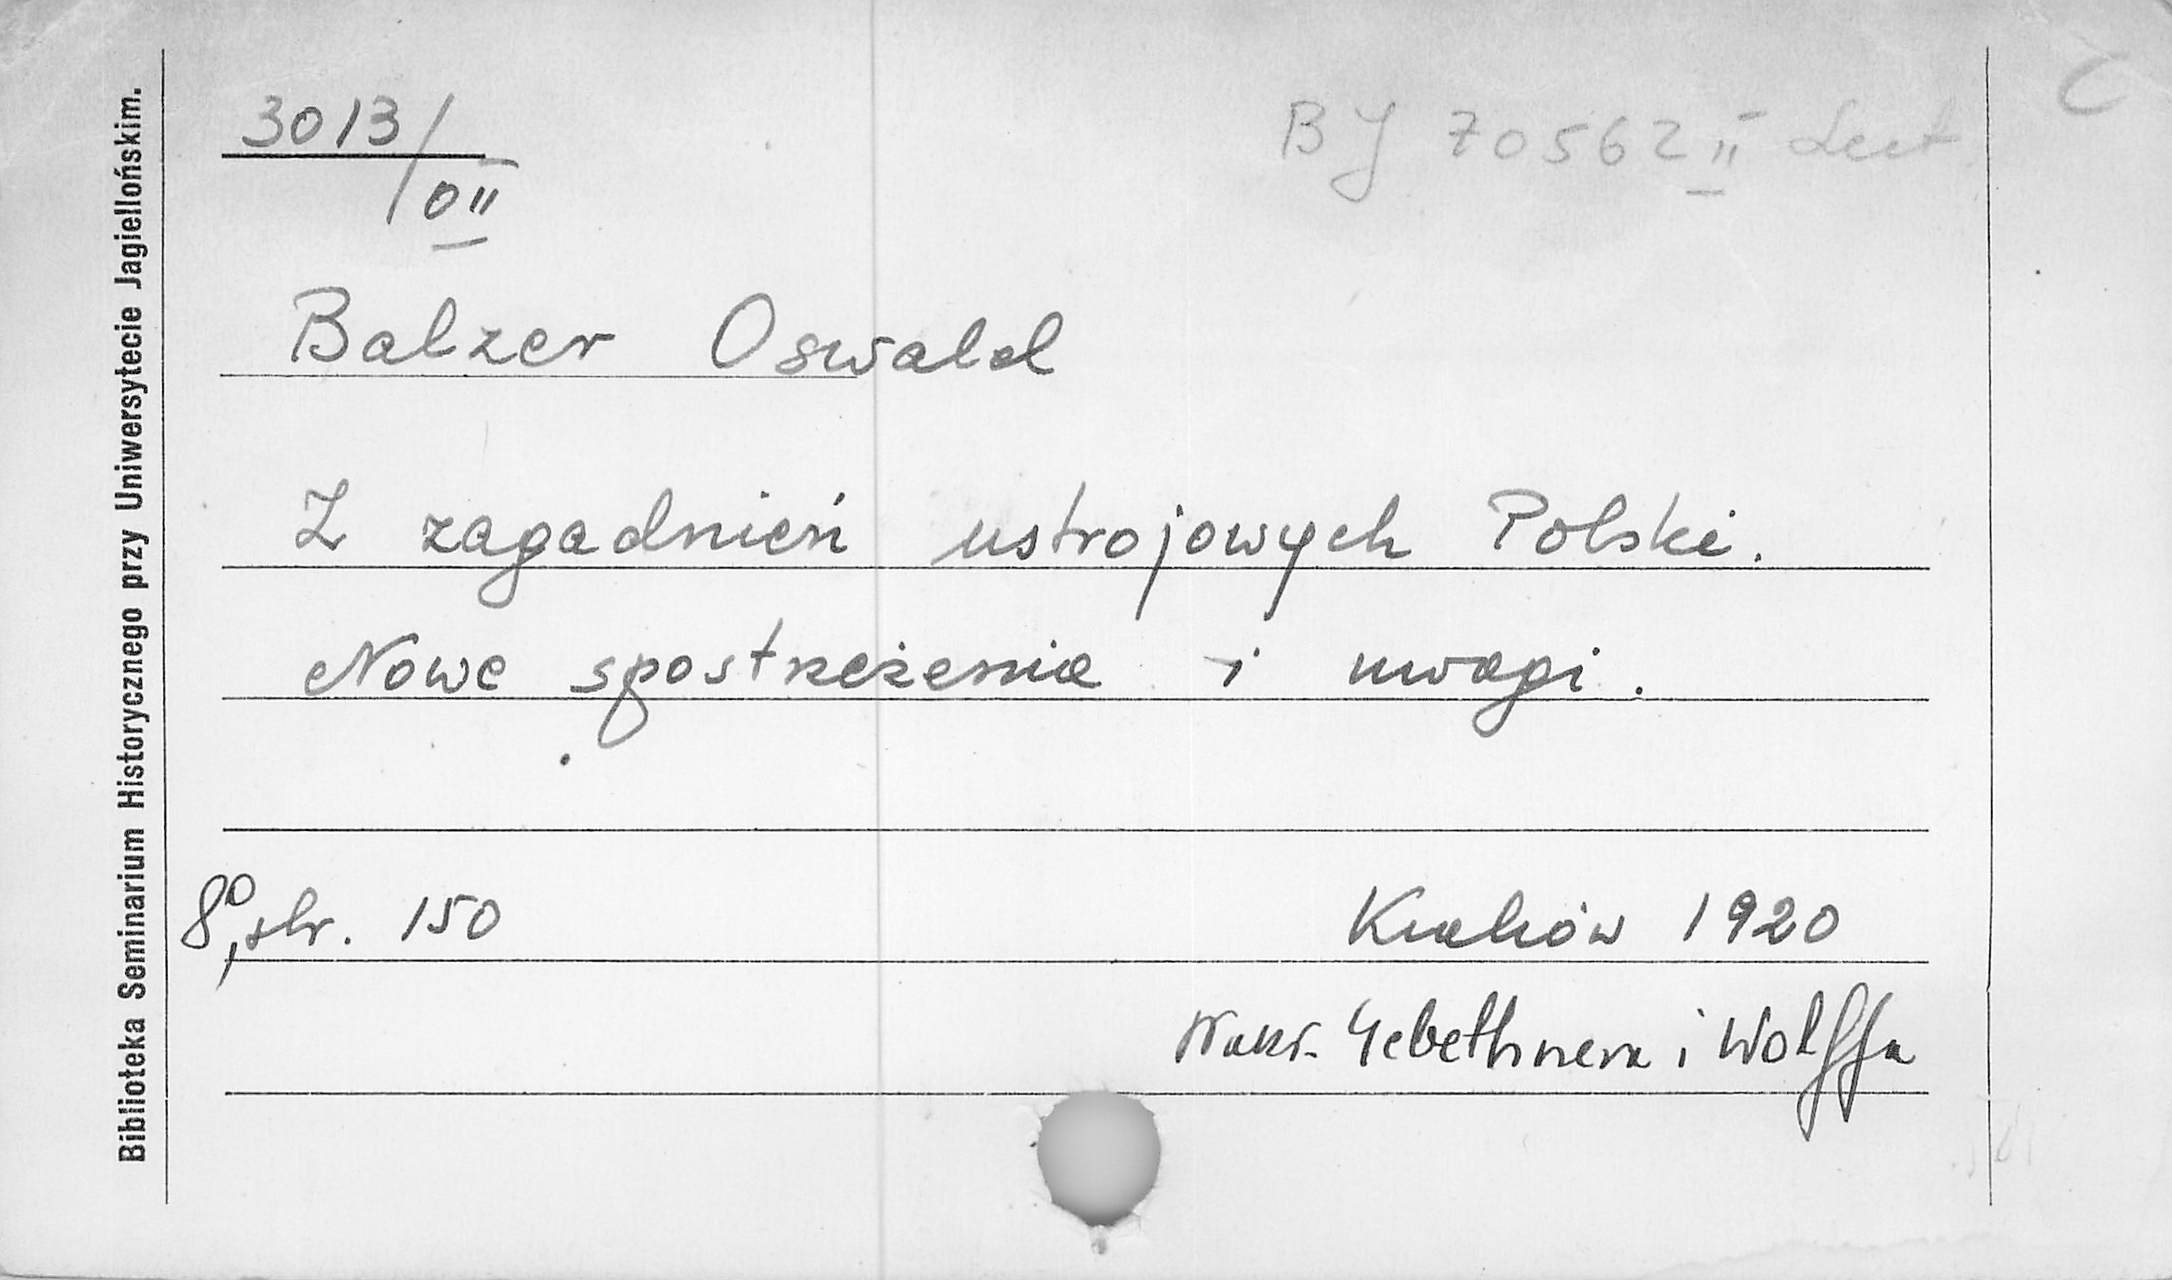 3013/
0II
BJ 70562 II Lect
C
Balzer Oswald
Z zagadnień ustrojowych Polski.
Nowe spostrzeżenia i uwagi.
8°, str. 150
Kraków 1920
Nakł. Gebethnera i Wolffa
Biblioteka Seminarium Historycznego przy Uniwersytecie Jagiellońskim.